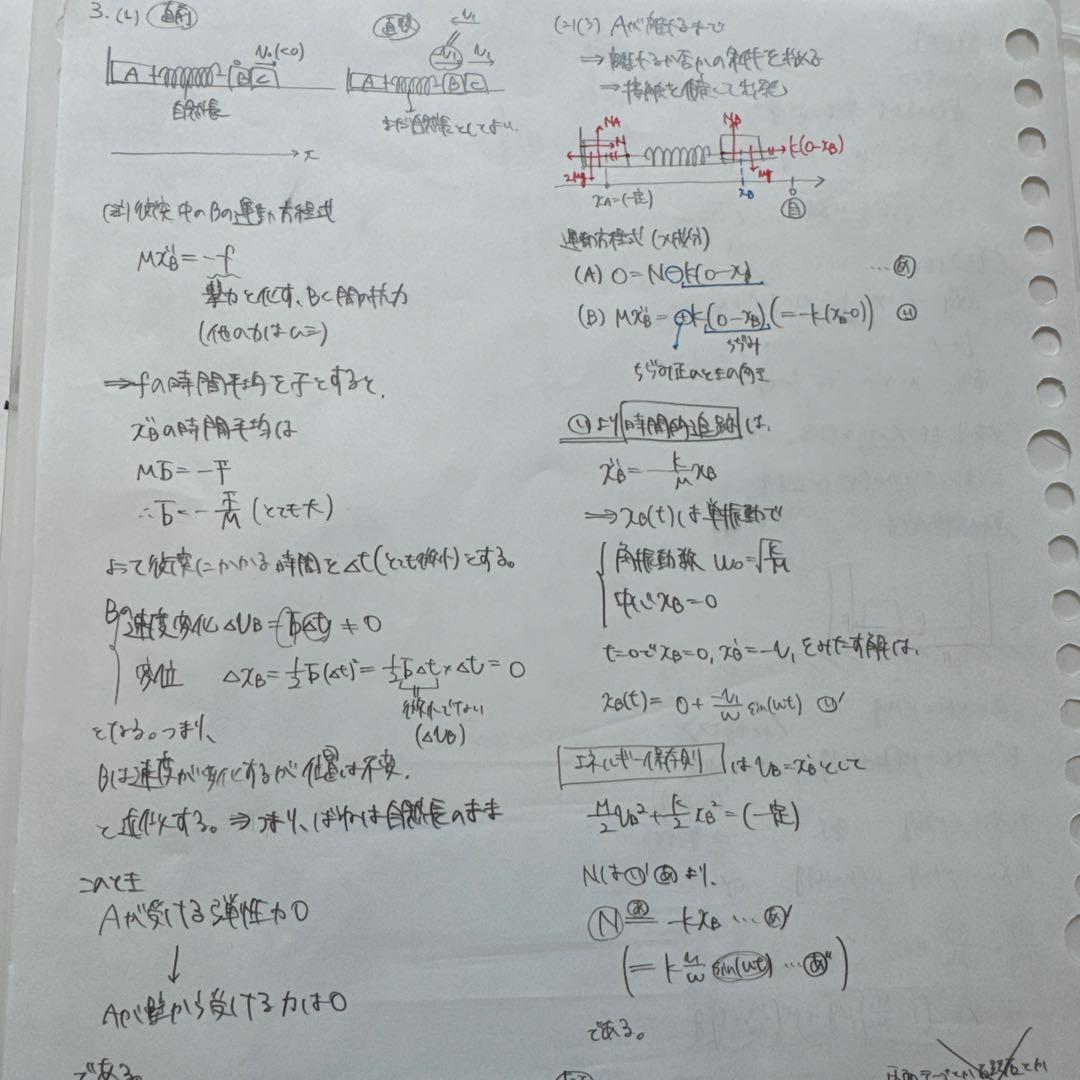 3. (1) 直前
v₀(<0)
A
B
C
自然長
x
直後
v₁
v₁
A
B
C
まだ自然長としてよい.
(注) 衝突中のBの運動方程式
Mẍ_B = -f
撃力と化す、BC間の抗力
(他の力はムシ)
⇒ fの時間平均をf̄とすると、
ẍ_Bの時間平均は
Mb̄ = -f̄
∴ b̄ = -f̄/M (とても大)
よって衝突にかかる時間をΔt(とても微小)とする。
Bの速度変化 Δv_B = b̄Δt ≠ 0
変位 Δx_B = ½b̄(Δt)² = ½b̄Δt × Δt = 0
微小でない
(Δv_B)
となる。つまり、
Bは速度が変化するが位置は不変.
と近似する。⇒ つまり、ばねは自然長のまま
このとき
Aが受ける弾性力0
↓
Aが壁から受ける力は0
である。
(2)(3) Aが離れるまで
⇒ 離れるか否かの条件を求める
⇒ 接触を仮定して出発
N_A
N
2Mg
x_A=(一定)
N_B
k(0-x_B)
Mg
x_B
0
自
運動方程式 (x成分)
(A) 0 = N⊖k(0-x_B) …あ
(B) Mẍ_B = ⊕k(0-x_B) (= -k(x_B-0)) い
ちぢみ
ちぢみ正のときの向き
いより 時間的追跡 は、
ẍ_B = -k/M x_B
⇒ x_B(t)は単振動で
角振動数 ω₀ = √k/M
中心 x_B = 0
t=0で x_B=0, ẋ_B=-v₁ をみたす解は、
x_B(t) = 0 + -v₁/ω sin(ωt) い′
エネルギー保存則 は v_B = ẋ_B として
M/2 v_B² + k/2 x_B² = (一定)
Nは い′ あ より、
N =あ -kx_B … あ′
(= k v₁/ω sin(ωt) … あ″)
である。